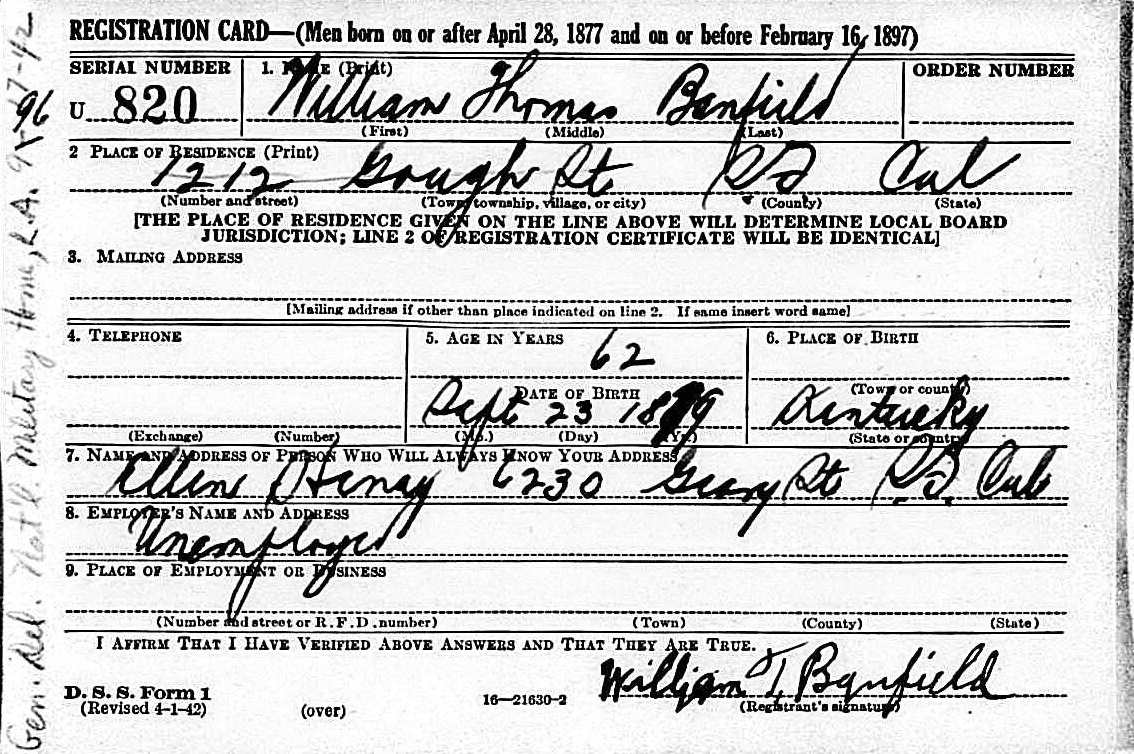 REGISTRATION CARD—(Men born on or after April 28, 1877 and on or before February 16, 1897)
SERIAL NUMBER
1. NAME (Print)
ORDER NUMBER
U 820
William Thomas Banfield
(First) (Middle) (Last)
2 PLACE OF RESIDENCE (Print)
1212 Gough St SF Cal
(Number and street) (Town, township, village, or city) (County) (State)
[THE PLACE OF RESIDENCE GIVEN ON THE LINE ABOVE WILL DETERMINE LOCAL BOARD
JURISDICTION; LINE 2 OF REGISTRATION CERTIFICATE WILL BE IDENTICAL]
3. MAILING ADDRESS
[Mailing address if other than place indicated on line 2. If same insert word same]
4. TELEPHONE
(Exchange) (Number)
5. AGE IN YEARS
62
DATE OF BIRTH
Sept 23 1879
(Mo.) (Day) (Yr.)
6. PLACE OF BIRTH
(Town or county)
Kentucky
(State or country)
7. NAME AND ADDRESS OF PERSON WHO WILL ALWAYS KNOW YOUR ADDRESS
Ellen 6230 Geary St S.F. Cal
8. EMPLOYER'S NAME AND ADDRESS
Unemployed
9. PLACE OF EMPLOYMENT OR BUSINESS
(Number and street or R.F.D. number) (Town) (County) (State)
I AFFIRM THAT I HAVE VERIFIED ABOVE ANSWERS AND THAT THEY ARE TRUE.
William T. Banfield
(Registrant's signature)
D. S. S. Form 1
(Revised 4-1-42)
(over)
16—21630-2
Gen. Del. Nat'l Military Home, L.A.